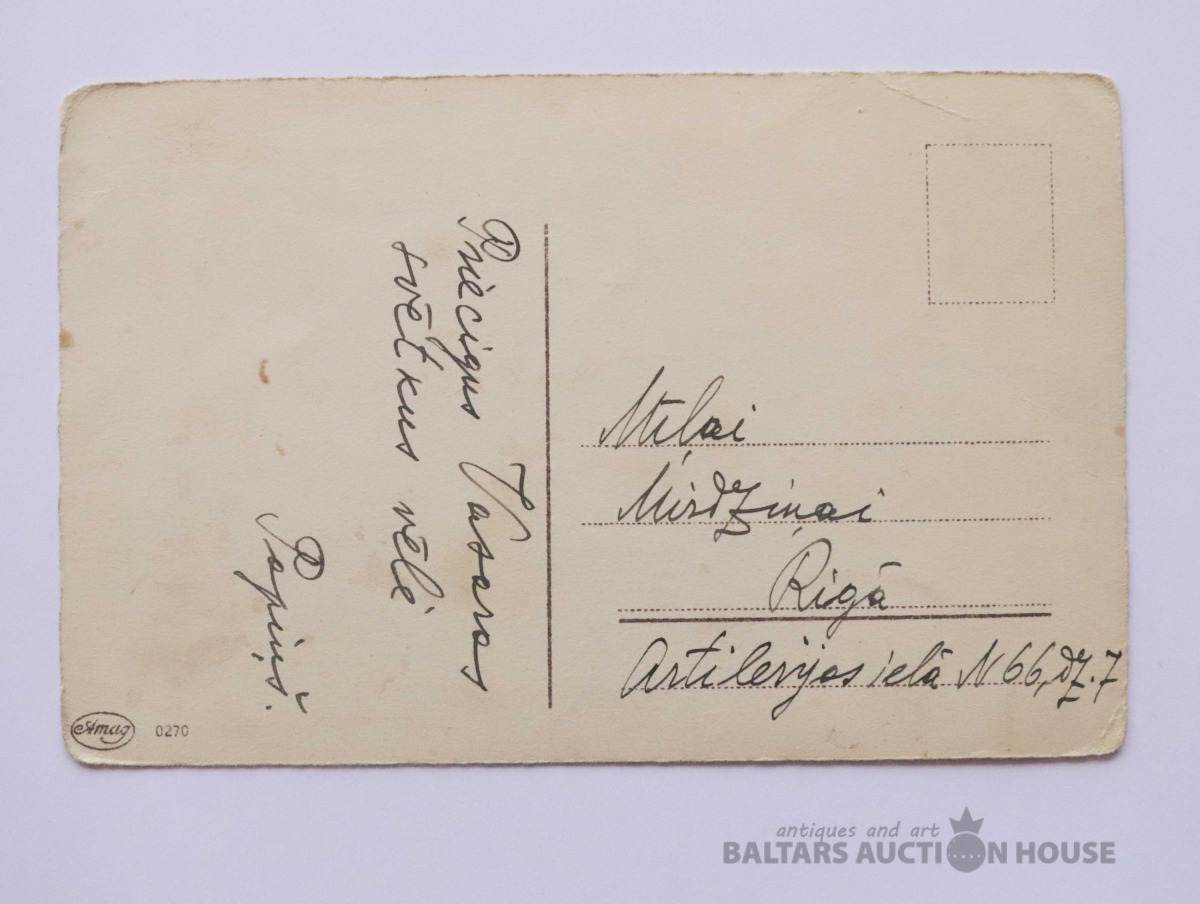 Priecigus Vasaros
svētkus vēlē
Papiņš.
Mīļai
Mirdziņai
Rīgā
Artilerijas ielā N 66, dz. 7
Amag
0270
antiques and art
BALTARS AUCTION HOUSE